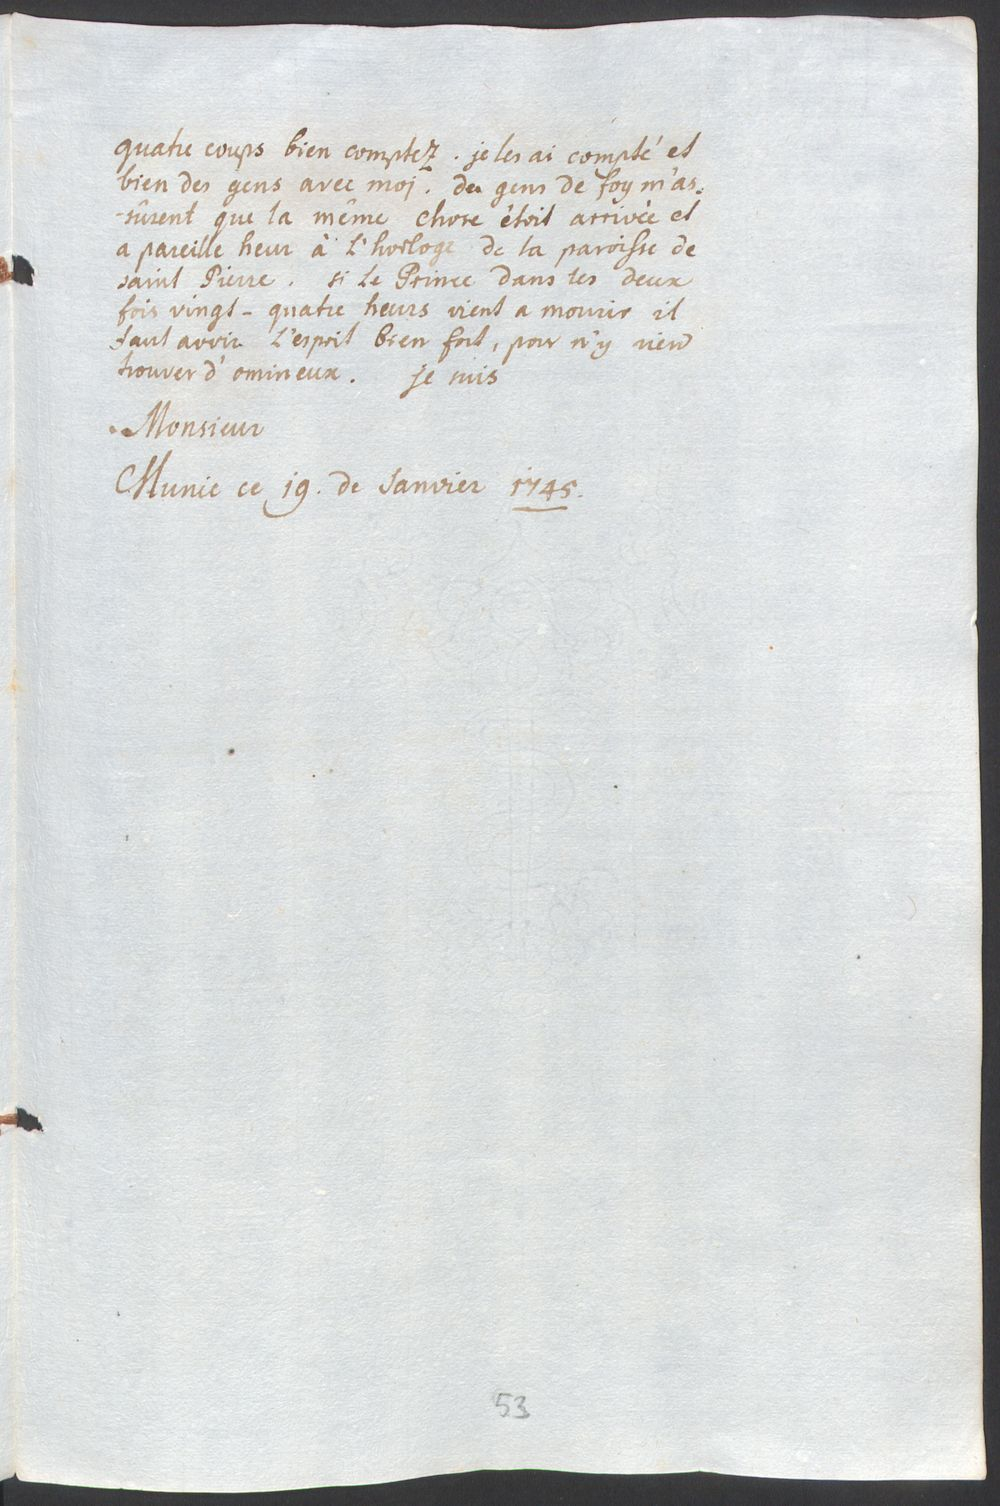 quatre coups bien comptez. je les ai compté et
bien des gens avec moj. des gens de foy m'as-
-sûrent que la même chose étoit arrivée et
a pareille heur à L'horloge de la paroisse de
saint Pierre. si Le Prince dans les deux
fois vingt-quatre heurs vient a mourir il
faut avoir L'esprit bien fort, pour n'y rien
trouver d'omineux. je suis
Monsieur
Munic ce 19. de Janvier 1745.
53